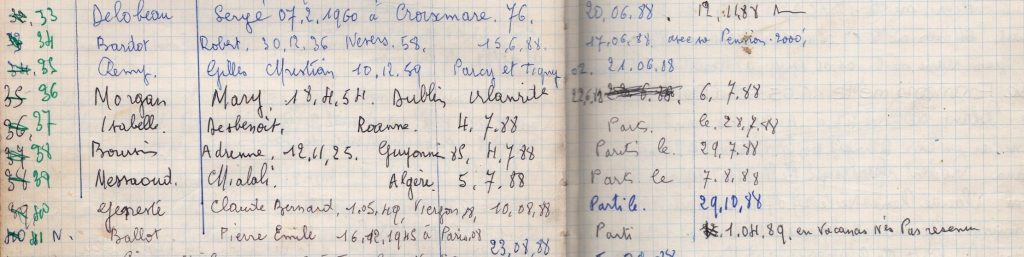 33 Delobeau Serge 07.2.1960 à Croixmare. 76. 20.06.88. 12.11.88
34 Bardot Robert. 30.12.36 Nevers. 58. 15.6.88. 17.06.88 avec sa Pension.
35 Remy. Gilles Christian 10.12.59 Parcy et Tigny 02. 21.06.88
35 36 Morgan Mary. 18.4.54. Dublin Irlande 6.7.88
36, 37 Isabelle. Desbenoit. Roanne. 4.7.88 Parti le 28.7.88
38 Boursis Adrenne. 12.11.25. Guyonne 85, 4.7.88 Parti le 29.7.88
39 Messaoud. Mialali Algérie. 5.7.88 Parti le 7.8.88
Geneste Claude Bernard, 1.05.49, Vierzon 18, 10,08,88 Parti le. 29,10,88
41 N. Ballot Pierre Emile 16.12.1945 à Paris.08 23,08,88 Parti 1.04.89. en vacances Pas revenu